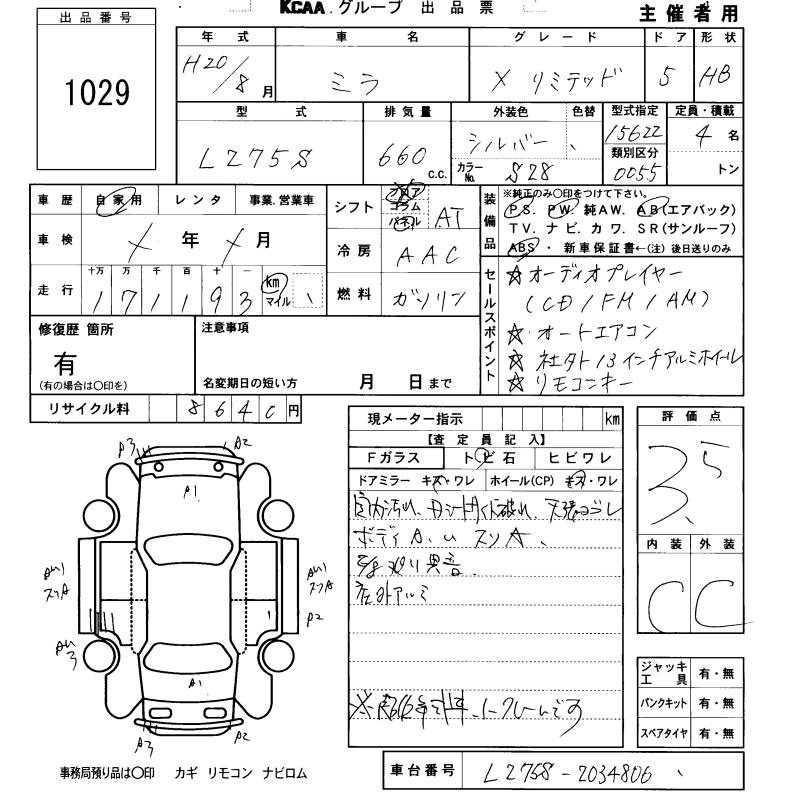 KCAA.グループ 出品票
主催者用
出品番号
1029
年式 車名 グレード ドア 形状
H20/8月 ミラ X リミテッド 5 HB
型式 排気量 外装色 色替 型式指定 定員・積載
L275S 660 c.c. シルバー 15622 4名
カラーNo. S28 類別区分 0055 トン
車歴 自家用 レンタ 事業.営業車
シフト フロア コラム パネル AT
装備品 ※純正のみ〇印をつけて下さい。
PS. PW. 純AW. AB(エアバック)
TV. ナビ. カワ. SR(サンルーフ)
ABS・新車保証書←(注)後日送りのみ
車検 年 月
冷房 AAC
走行 十万 万 千 百 十 一 km マイル
171193
燃料 ガソリン
セールスポイント
☆オーディオプレイヤー
(CD/FM/AM)
☆オートエアコン
☆社外13インチアルミホイール
☆リモコンキー
修復歴 箇所
有
(有の場合は〇印を)
注意事項
名変期日の短い方 月 日まで
リサイクル料 8640円
現メーター指示 km
【査定員記入】
Fガラス トビ石 ヒビワレ
ドアミラー キズ・ワレ ホイール(CP) キズ・ワレ
室内汚れ、
ボディA.U スリA、
異音、
社外アルミ
ノークレームです
評価点
3.5
内装 外装
C C
ジャッキ工具 有・無
パンクキット 有・無
スペアタイヤ 有・無
A3 A2
A1
AU1 スリA
AU1 スリA
P2
AU3
A1
A3 P2
事務局預り品は〇印 カギ リモコン ナビロム
車台番号 L275S-2034806